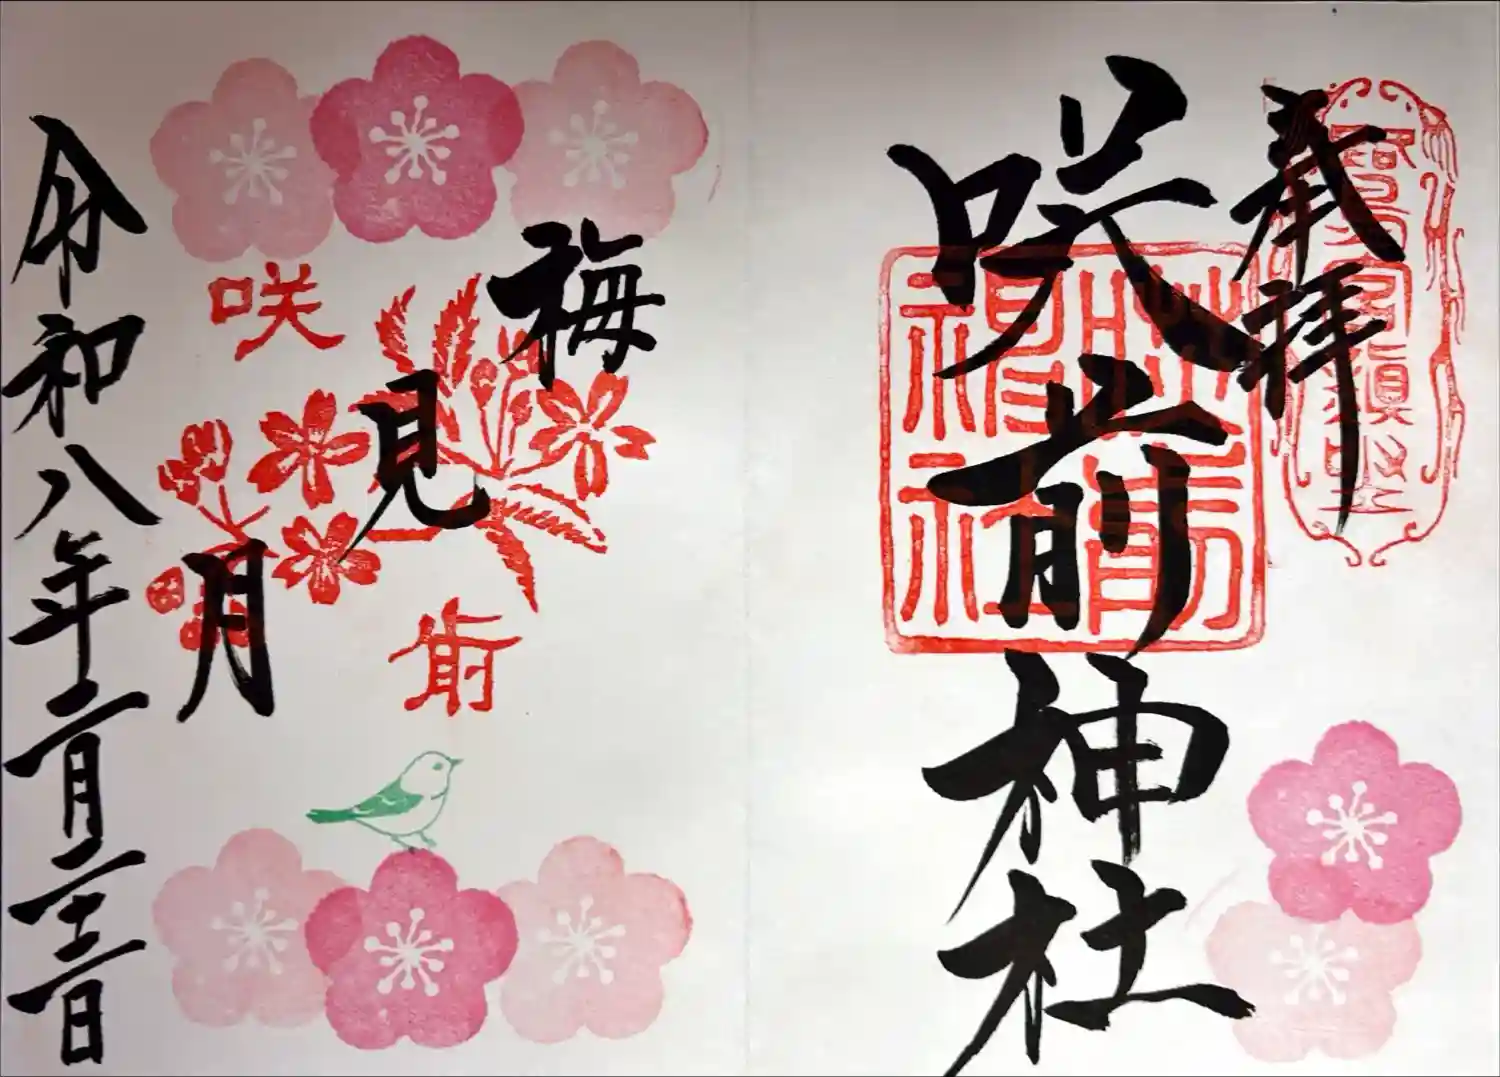 奉拝
咲前神社
咲前神社
梅見月
咲前
令和八年二月二十二日